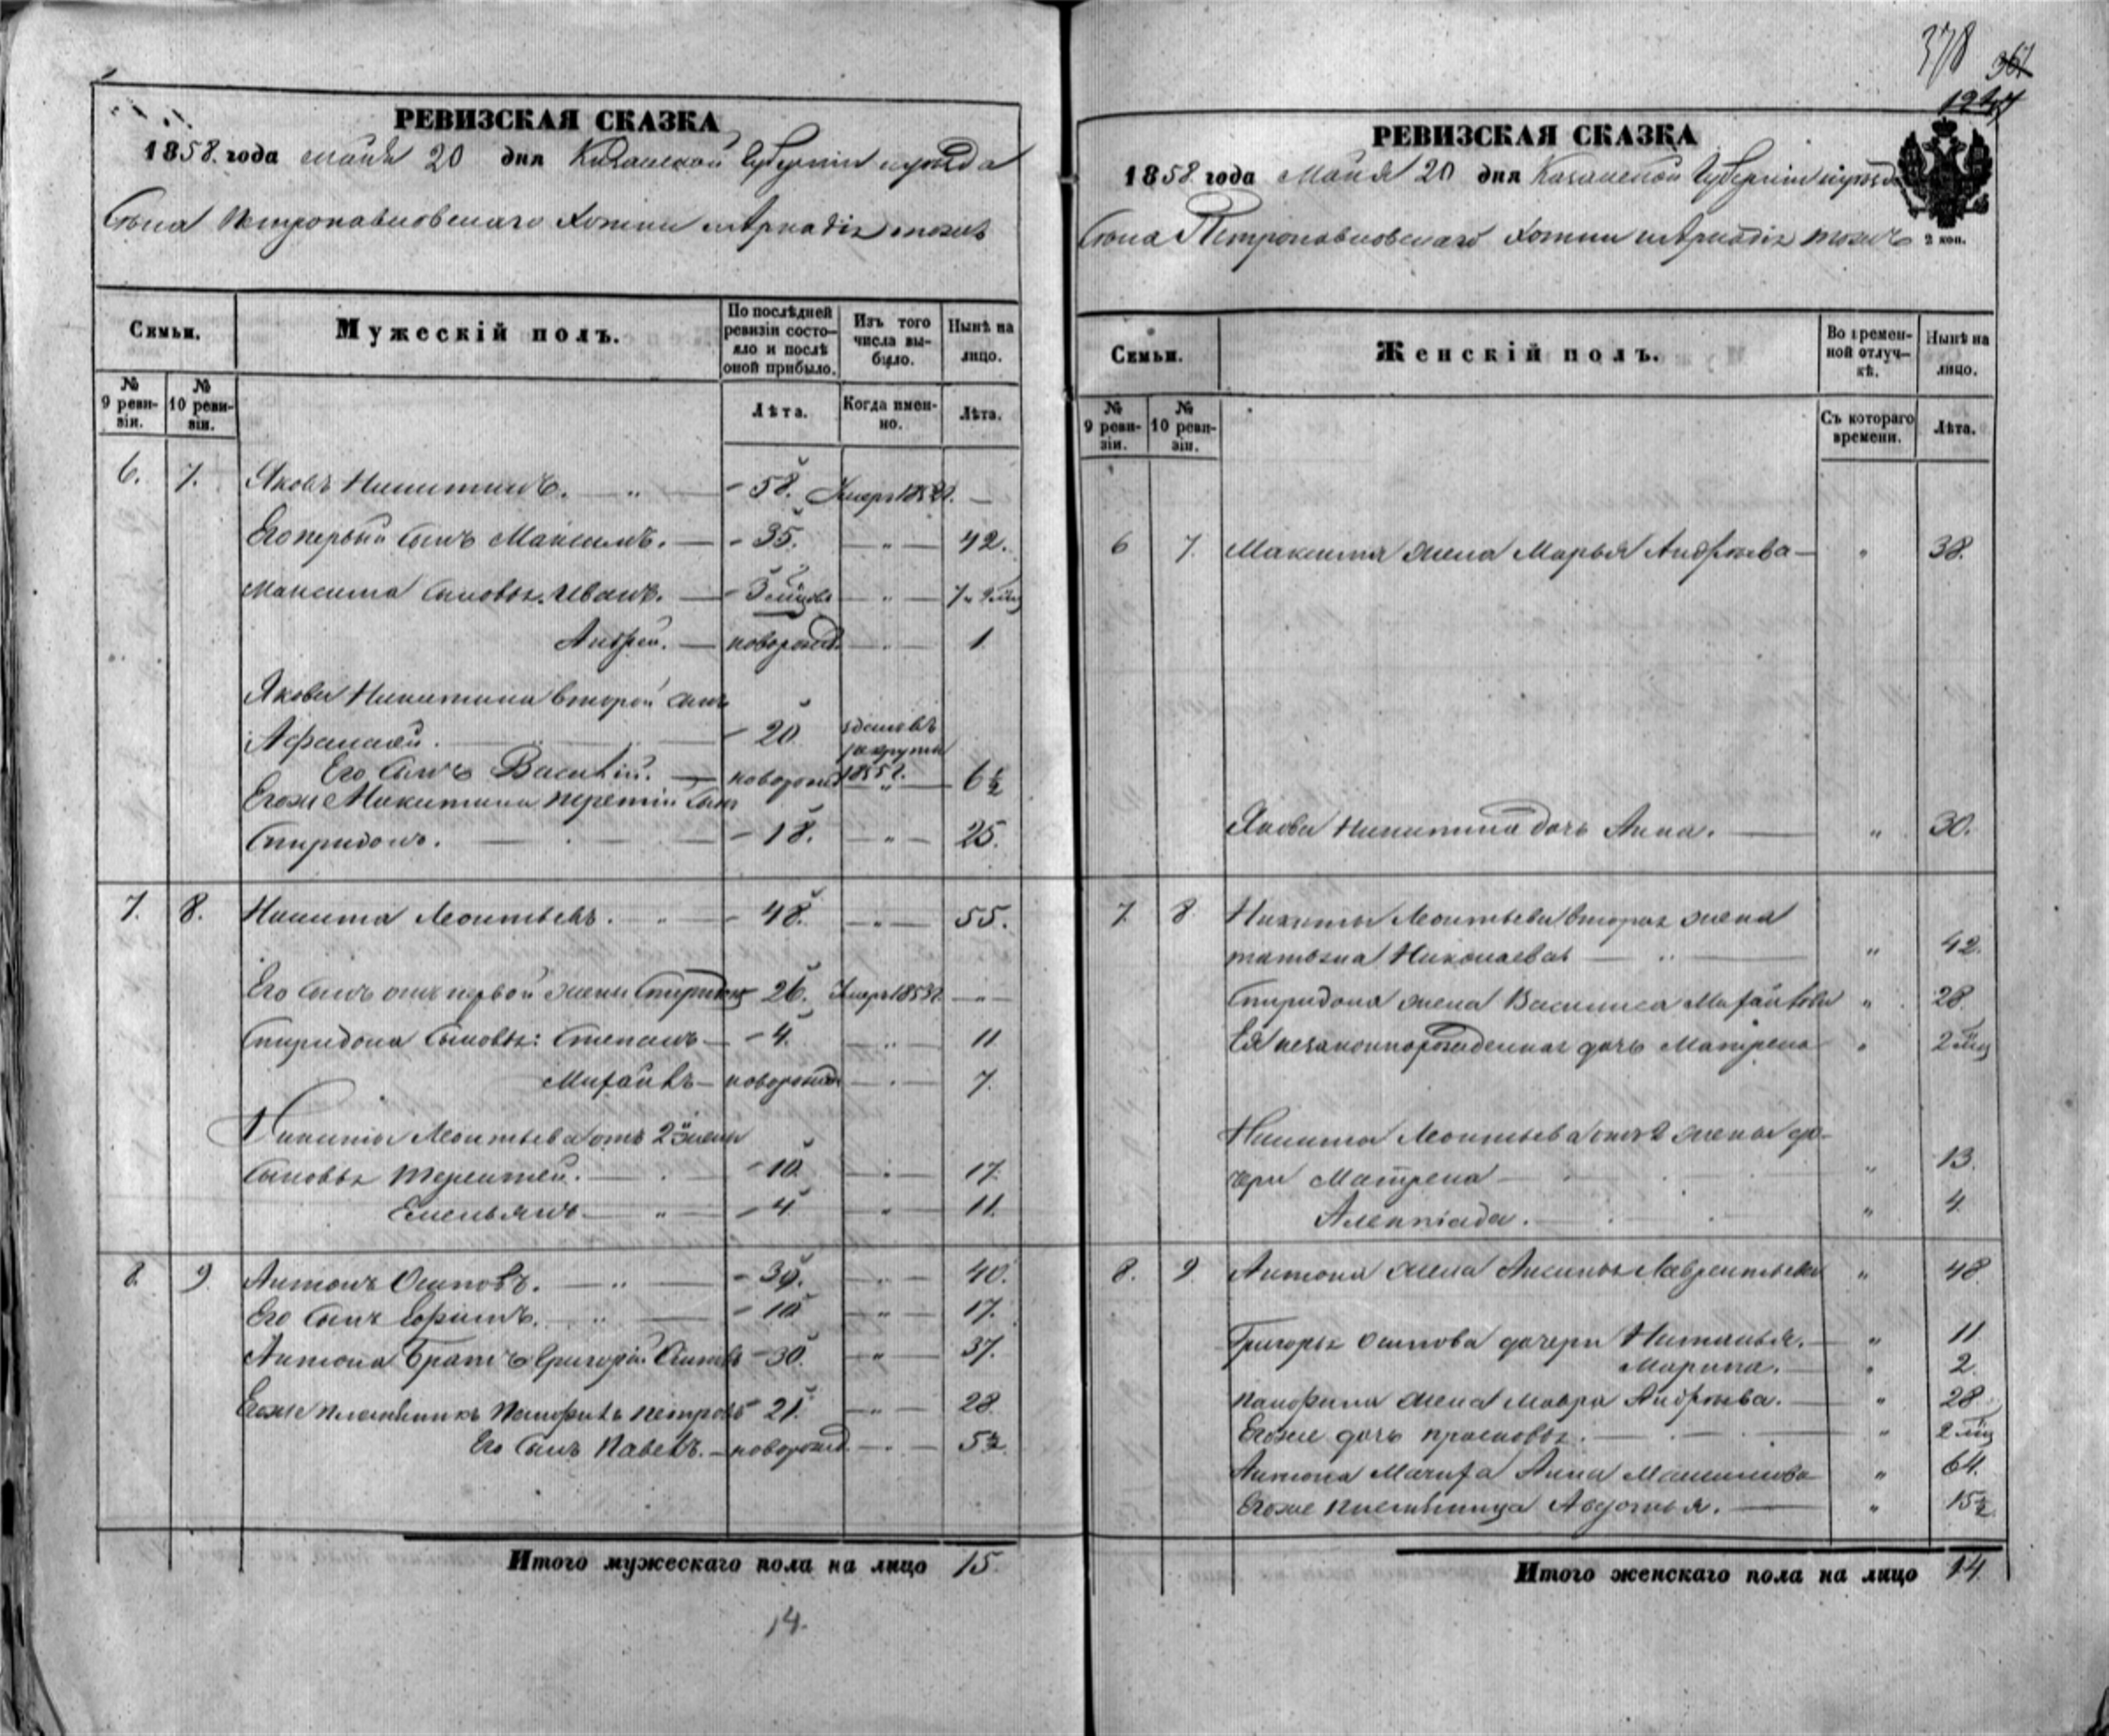 РЕВИЗСКАЯ СКАЗКА
1858. года маия 20 дня Казанской Губернии и уезда
Села Петропавловскаго Хотни и Аркадія тожъ
Семьи.
Мужескій полъ.
По послѣдней ревизіи состояло и послѣ оной прибыло.
Изъ того числа выбыло.
Нынѣ на лицо.
№ 9 ревизіи.
№ 10 ревизіи.
Лѣта.
Когда именно.
Лѣта.
6. 7. Яковъ Никитинъ. " 58. Умеръ —
Его первый сынъ Максимъ. 35. " 42.
Максима сыновья: Иванъ. " 7
Андрей. новорожд. " 1
Якова Никитина второй сынъ
Афанасій. 20 зданъ въ рекруты 1855 г.
Его сынъ Василій. новорожд " 6½
Егоже Никитина третій сынъ
Спиридонъ. 18. " 25.
7. 8. Никита Леонтьевъ. " 48. " 55.
Его сынъ отъ первой жены Спиридонъ 26. Умеръ "
Спиридона сыновья: Степанъ 4. " 11
Михайлъ новорожд " 7.
Никиты Леонтьева отъ 2й жены
сыновья Терентей. 10. " 17.
Емельянъ " 4 " 11.
8. 9. Антонъ Осиповъ. " " 40.
Его сынъ Ефимъ. " 10 " 17.
Антона братъ Григорій Осиповъ 30. " 37.
Егоже племянникъ Панфилъ Петровъ 21. " 28.
Его сынъ Павелъ. новорожд " 5½
Итого мужескаго пола на лицо 15.
14.
378 361
РЕВИЗСКАЯ СКАЗКА
1858 года Маия 20 дня Казанской Губернии и уезда
Села Петропавловскаго Хотни и Аркадія тожъ
2 коп.
Семьи.
Женскій полъ.
Во временной отлучкѣ.
Нынѣ на лицо.
№ 9 ревизіи.
№ 10 ревизіи.
Съ котораго времени.
Лѣта.
6 7. Максима жена Марья Андреева " 38.
Якова Никитина дочь Анна. " 30.
7. 8 Никиты Леонтьева вторая жена
Татьяна Николаева " 42.
Спиридона жена Василиса Михайлова " 28.
Ея незаконнорожденная дочь Матрена " 2 мец
Никиты Леонтьева отъ 2 жены до-
чери Матрена " 13.
" 4.
8. 9. Антона жена Аксинья Лаврентьева " 48
Григорья Осипова дочери Наталья. " 11
Марина. " 2.
Панфила жена Мавра Андреева. " 28.
Егоже дочь Прасковья. " 2 мец
Антона мачиха Анна Максимова " 64.
Егоже племянница Авдотья. " 15½
Итого женскаго пола на лицо 14